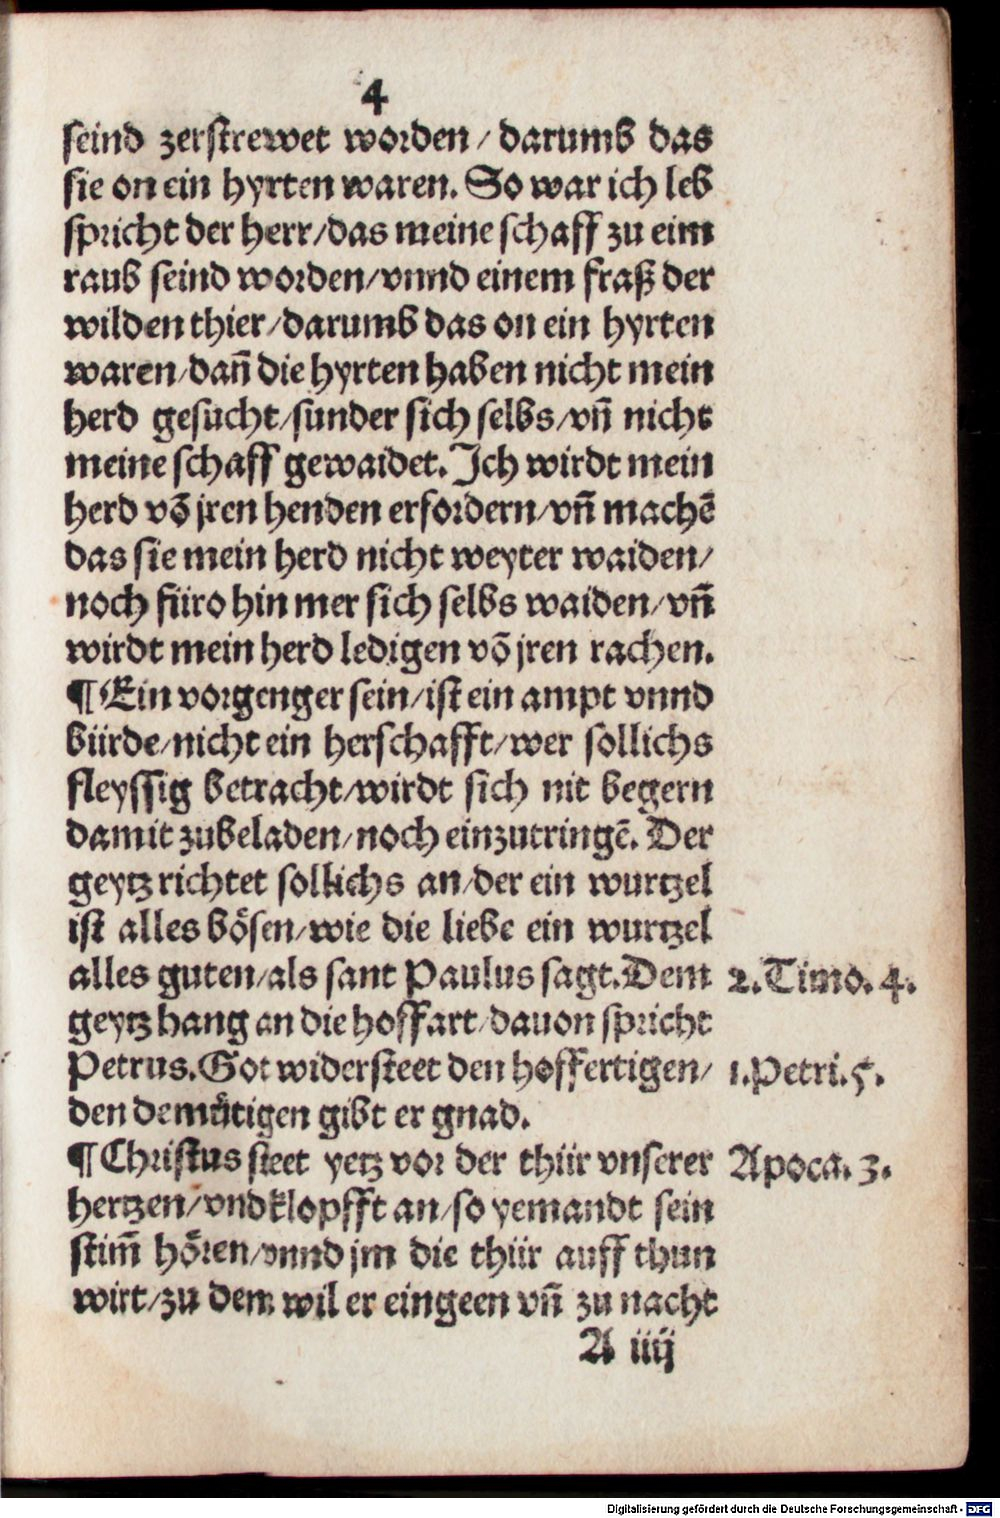 4
seind zerstrewet worden / darumb das
sie on ein hyrten waren. So war ich leb
spricht der herr/das meine schaff zu eim
raub seind worden/vnnd einem fraß der
wilden thier/darumb das on ein hyrten
waren/dan̄ die hyrten haben nicht mein
herd gesucht/sunder sich selbs/vn̄ nicht
meine schaff gewaidet. Ich wirdt mein
herd vō jren henden erfordern/vn̄ machē
das sie mein herd nicht weyter waiden/
noch füro hin mer sich selbs waiden/vn̄
wirdt mein herd ledigen vō jren rachen.
¶ Ein vorgenger sein/ist ein ampt vnnd
bürde/nicht ein herschafft/wer sollichs
fleyssig betracht/wirdt sich nit begern
damit zubeladen/noch einzutringē. Der
geytz richtet sollichs an/der ein wurtzel
ist alles bösen/wie die liebe ein wurtzel
alles guten/als sant Paulus sagt. Dem 2. Timo. 4.
geytz hang an die hoffart/dauon spricht
Petrus. Got widersteet den hoffertigen/ 1. Petri. 5.
den demütigen gibt er gnad.
¶ Christus steet yetz vor der thür vnserer Apoca. 3.
hertzen/vnd klopfft an/so yemandt sein
stim̄ hören/vnnd jm die thür auff thun
wirt/zu dem wil er eingeen vn̄ zu nacht
A iiij
Digitalisierung gefördert durch die Deutsche Forschungsgemeinschaft - DFG